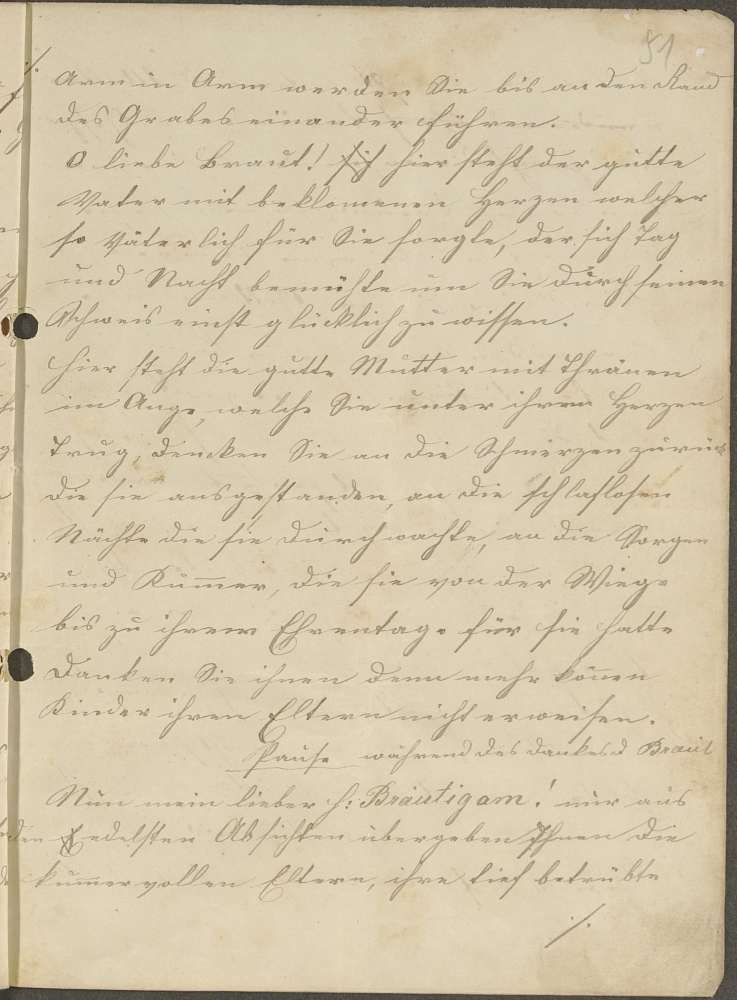 51
./.
Arm in Arm werden Sie bis an den Rand
des Grabes einander führen.
O liebe Braut! hier steht der gutte
Vater mit beklommenen Herzen welcher
so Väterlich für Sie sorgte, der sich Tag
und Nacht bemühte um Sie durch seinen
Schweis einst glücklich zu wissen.
Hier steht die gutte Mutter mit Thränen
im Auge, welche Sie unter ihren Herzen
trug, dencken Sie an die Schmerzen zurück
die sie ausgestanden, an die schlaflosen
Nächte die sie durchwachte, an die Sorgen
und Kum̄er, die sie von der Wiege
bis zu ihrem Ehrentage für sie hatte
Danken Sie ihnen denn mehr kön̄en
Kinder ihren Eltern nicht erweisen.
Pause während des Dankes d Braut
Nun mein lieber H: Bräutigam! nur aus
den edelsten Absichten übergeben Ihnen die
kum̄ervollen Eltern, ihre tief betrübte
./.